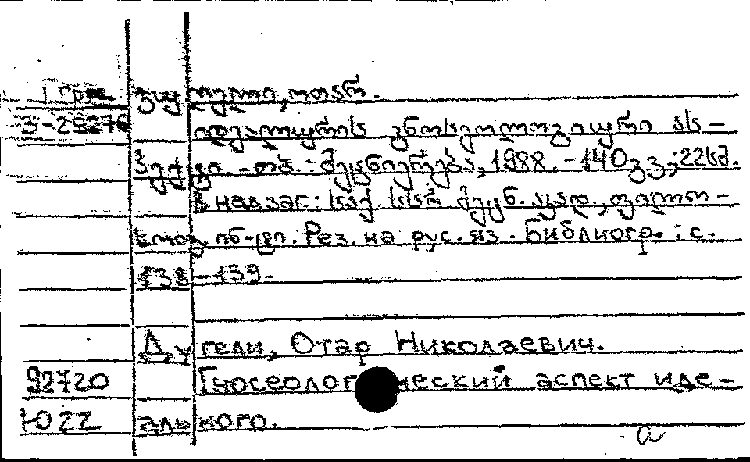 Груз. ჯუღელი, ოთარ.
3-2927б იდეალურის გნოსეოლოგიური ას–
პექტი. –თბ.: მეცნიერება, 1988. –140გვ.; 22სმ.
В надзаг.: საქ. სსრ მეცნ. აკად., ფილოსო–
ფიის ინ-ტი. Рез. на рус. яз. – Библиогр.: с.
138–139.
Джугели, Отар Николаевич.
92720 Гносеологический аспект иде–
Ю22 ального.
a